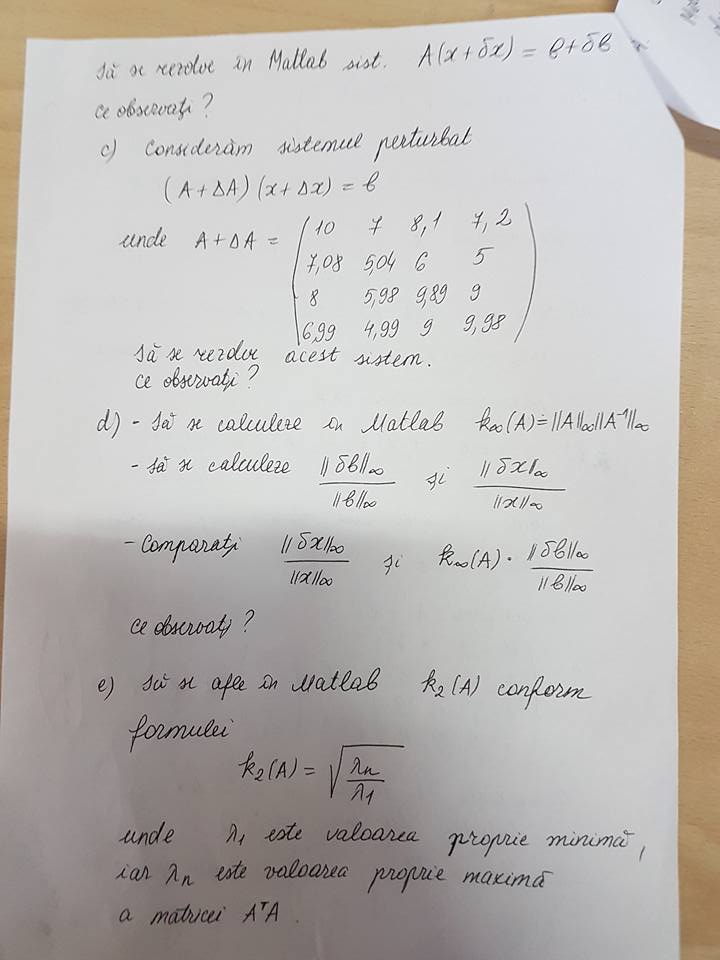 Să se rezolve în Matlab sist. A(x+δx) = b+δb
ce observați?
c) Considerăm sistemul perturbat
(A+ΔA)(x+Δx) = b
unde A+ΔA = (10 7 8,1 7,2
7,08 5,04 6 5
8 5,98 9,89 9
6,99 4,99 9 9,98)
Să se rezolve acest sistem.
ce observați?
d) - Să se calculeze în Matlab k∞(A) = ||A||∞||A⁻¹||∞
- Să se calculeze ||δb||∞/||b||∞ și ||δx||∞/||x||∞
- Comparați ||δx||∞/||x||∞ și k∞(A) · ||δb||∞/||b||∞
ce observați?
e) Să se afle în Matlab k₂(A) conform
formulei
k₂(A) = √(λn/λ1)
unde λ1 este valoarea proprie minimă,
iar λn este valoarea proprie maximă
a matricei AᵀA.